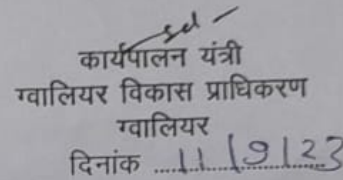 sd -
कार्यपालन यंत्री
ग्वालियर विकास प्राधिकरण
ग्वालियर
दिनांक ....11/9/23